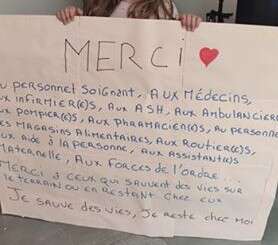 MERCI ♥
AU PERSONNEL SOIGNANT, AUX MÉDECINS,
AUX INFIRMIER(E)S, AUX ASH, AUX AMBULANCIERS
AUX POMPIER(E)S, AUX PHARMACIEN(E)S, AU PERSONNEL
DES MAGASINS ALIMENTAIRES, AUX ROUTIER(E)S,
AUX AIDE À LA PERSONNE, AUX ASSISTANT(E)S
MATERNELLE, AUX FORCES DE L'ORDRE
MERCI À CEUX QUI SAUVENT DES VIES SUR
LE TERRAIN OU EN RESTANT CHEZ EUX
JE SAUVE DES VIES, JE RESTE CHEZ MOI